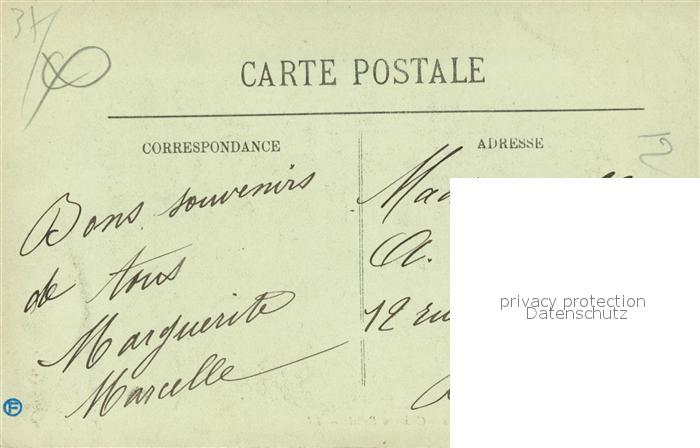 CARTE POSTALE
CORRESPONDANCE
ADRESSE
Bons souvenirs
de tous
Marguerite
Marcelle
A.
12 rue
privacy protection
Datenschutz